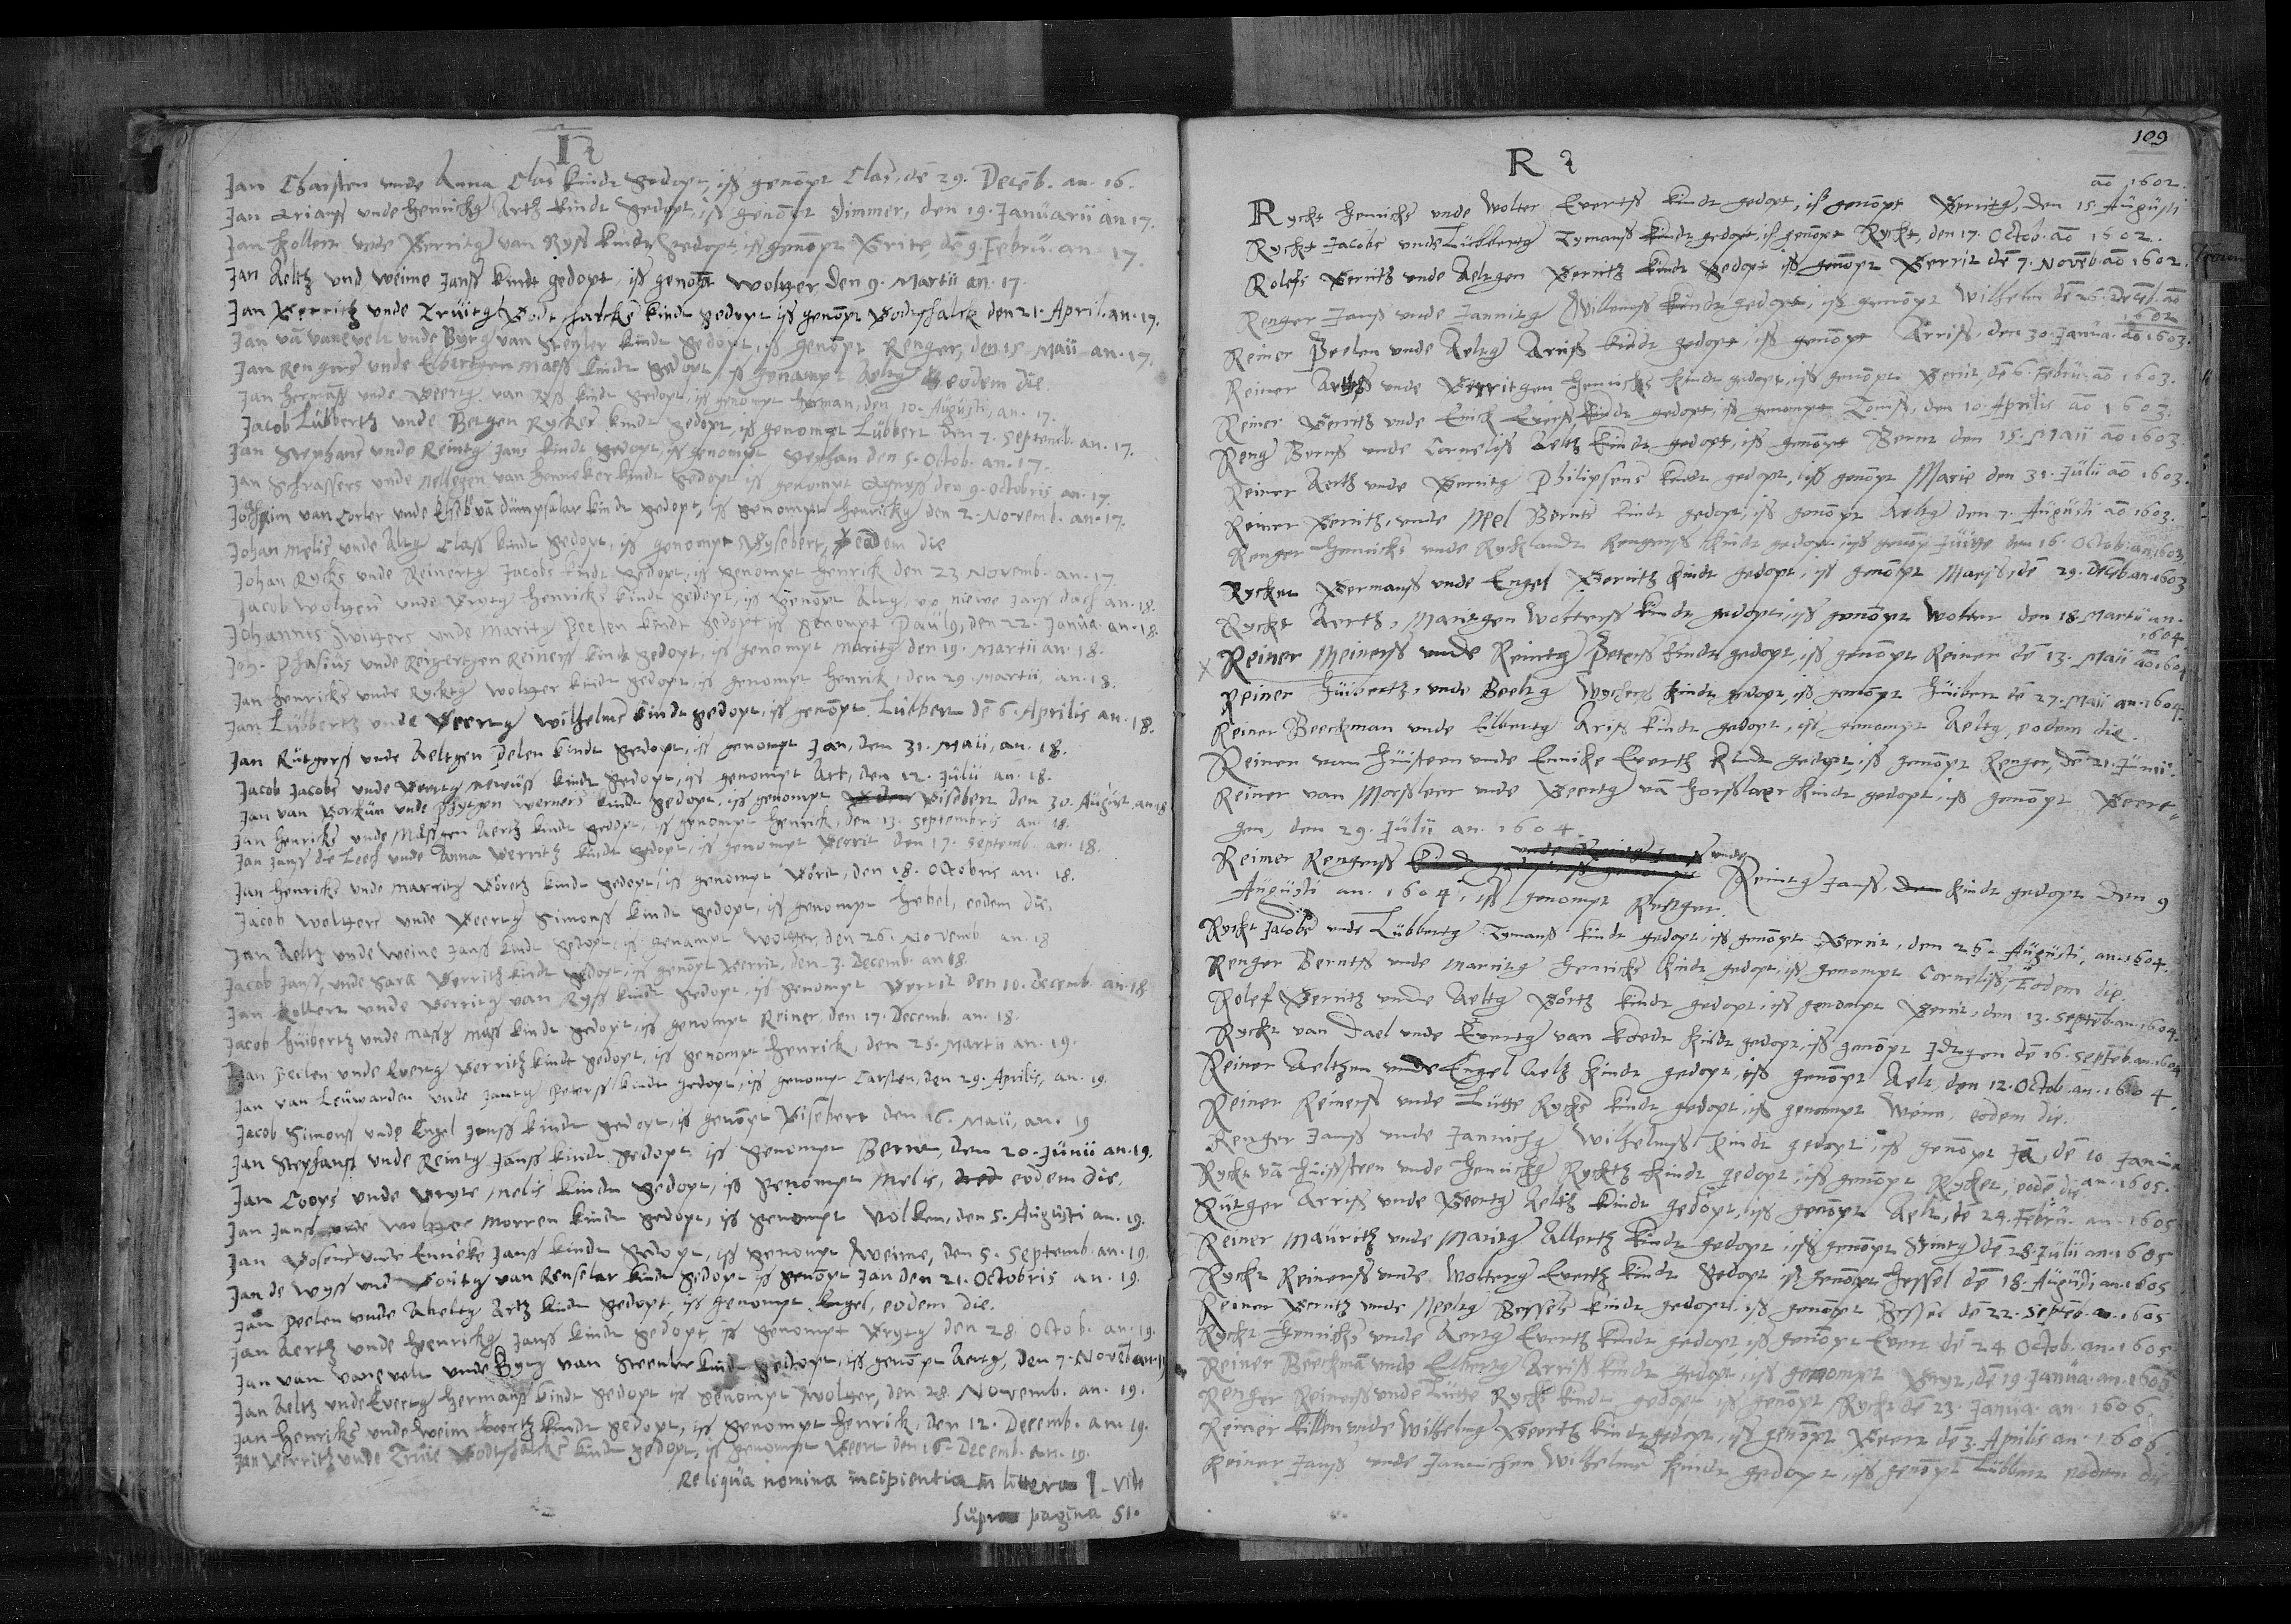 I
Jan Charsten unde Anna Clas kindt gedopt, iß genompt Clas, den 29. Decēb. an. 16.
Jan Arianß unde Henrichg Artz kindt gedopt, iß genōpt Dimmer, den 19. Januarii an 17.
Jan Kollert unde Gerritg van Ryß kindt gedopt iß genōpt Grite, dē 9. Febru. an 17.
Jan Aeltz und Weime Janß kindt gedopt, iß genōpt Woltter den 9. Martii an. 17.
Jan Gerritz unde Truitg Godtschalcks kindt gedopt iß genōpt Godtschalck den 21. April. an. 17.
Jan vā vanevelt unde Byrg van Stenler kindt gedopt, iß genōpt Renger, den 15 Maii an. 17.
Jan Rengers unde Ebertgen Maeß kindt gedopt, iß genampt Aeltg eodem die.
Jan Hermanß unde Geertg van Ryß kindt gedopt, iß genompt Herman, den 10. Augusti, an. 17.
Jacob Lubbertz unde Betgen Ryckes kindt gedopt, iß genompt Lubbert den 7. Septemb. an. 17.
Jan Stephans unde Reintg Jans kindt gedopt, iß genompt Stephan den 5. Octob. an. 17.
Jan Schrassers unde Nellegen van Henneker kindt gedopt iß genompt Agnyß den 9. Octobris an. 17.
Jochim van Corler unde Elseb vā Dumpsalar kindt gedopt, iß genompt Henrickg den 2. Novemb. an. 17.
Johan Melis unde Altg Claß kindt gedopt, iß genompt Gysebert, eodem die
Johan Rycks unde Reinertg Jacobs kindt gedopt, iß genompt Henrick den 23 Novemb. an. 17.
Jacob Wolters unde Grytg Henricks kindt gedopt, iß genōpt Altg, up niewe Jars dach an. 18.
Johannes Zwitters unde Maritg Peelen kindt gedopt iß genompt Paulg, den 22. Janua. an. 18.
Joh. Phasius unde Reigertgen Reiners kindt gedopt, iß genompt Maritg den 19. Martii an. 18.
Jan Henricks unde Rycktg Woltter kindt gedopt, iß genompt Henrik, den 29. Martii, an. 18.
Jan Lubbertz unde Geertg Wilhelms kindt gedopt, iß genōpt Lubbert dē 6. Aprilis an. 18.
Jan Rutgers unde Aeltgen Pelen kindt gedopt, iß genompt Jan, den 31. Maii, an. 18.
Jacob Jacobs unde Geertg Mewuß kindt gedopt, iß genompt Art, den 12. Julii an. 18.
Jan van Borkum unde Gytgen Werners kindt gedopt, iß genompt Gisebert den 30. August. an. 18
Jan Henricks unde Maßgen Aertz kindt gedopt, iß genompt Henrick, den 13. Septembris an. 18.
Jan Janß de Leest unde Anna Gerritz kindt gedopt, iß genompt Gerrit den 17. Septemb. an. 18.
Jan Henricks unde Marritg Goretz kindt gedopt, iß genompt Gorit, den 18. Octobris an. 18.
Jacob Woltters unde Geertg Simonß kindt gedopt, iß genompt Hebel, eodem die.
Jan Aeltz unde Weime Janß kindt gedopt, iß genampt Woltter, den 26. Novemb. an. 18
Jacob Janß, unde Sara Gerritz kindt gedopt, iß genōpt Gerrit, den 3. Decemb. an 18.
Jan Kollert unde Gerritg van Ryß kindt gedopt, iß genompt Gerrit den 10. Decemb. an. 18
Jacob Huibertz unde Maßg Maß kindt gedopt, iß genompt Reiner, den 17. Decemb. an. 18.
Jan Peelen unde Evertg Gerritz kindt gedopt, iß genompt Henrick, den 25. Martii an. 19.
Jan van Leuwarden unde Jantg Peterß kindt gedopt, iß genompt Carsten, den 29. Aprilis, an. 19.
Jacob Simonß unde Engel Janß kindt gedopt, iß genōpt Gisebert den 16. Maii, an. 19
Jan Stephanß unde Reintg Janß kindt gedopt iß genompt Bernt, den 20. Junii an. 19.
Jan Coops unde Gryte Melis kindt gedopt, iß genompt Melis, eodem die.
Jan Janß unde Woltter Morren kindt gedopt, iß genompt Volken, den 5. Augusti an. 19.
Jan Gosens unde Enneke Janß kindt gedopt, iß genompt Weime, den 5. Septemb. an. 19.
Jan de Wyß und Goitg van Renselar kindt gedopt iß genōpt Jan den 21. Octobris an. 19.
Jan Peelen unde Aheltg Artz kindt gedopt, iß genompt Engel, eodem die.
Jan Aertz unde Henrickg Janß kindt gedopt, iß genompt Grytg den 28. Octob. an. 19.
Jan van vanevelt unde Byrg van Steenler kindt gedopt, iß genōpt Aertg, den 7. Novēb. an. 19
Jan Aeltz unde Evertg Hermanß kindt gedopt iß genompt Woltter, den 28. Novemb. an. 19.
Jan Henricks unde Weim Evertz kindt gedopt, iß genompt Henrick, den 12. Decemb. an. 19.
Jan Gerritz unde Truie Godtschalcks kindt gedopt, iß genompt Geert den 16. Decemb. an. 19.
Reliqua nomina incipientia in littera I. vide
supra pagina 51.
109
R
aō 1602.
Ryckt Henricks unde Wolter Evertß kindt gedopt, iß genōpt Gerritg, den 15 Augusti
Ryckt Jacobs unde Lubbertg Tymanß kindt gedopt, iß genōpt Ryckt, den 17. Octob. aō 1602.
Rolefs Gerritz unde Aeltgen Gerritz kindt gedopt iß genōpt Gerrit dē 7. Novēb. aō 1602.
Renger Janß unde Jannitg Willemß kindt gedopt, iß genōpt Wilhelm dē 26. Decēb. aō
1602
Reiner Peelen unde Aeltg Arriß kindt gedopt, iß genōpt Arriß, den 30. Janua. aō 1603.
Reiner Artß unde Gerritgen Henricks kindt gedopt, iß genōpt Gerrit, dē 6. Febru. aō 1603.
Reiner Gerritz unde Enick Everß kindt gedopt, iß genompt Toniß, den 10. Aprilis aō 1603.
Reng Bernß unde Corneliß Aeltz kindt gedopt, iß genōpt Bernt den 15. Maii aō 1603.
Reiner Aertz unde Gerritg Philipsens kindt gedopt, iß genōpt Marie den 31. Julii aō 1603.
Reiner Gerritz, unde Mel Bernts kindt gedopt, iß genōpt Aeltg den 7. Augusti aō 1603.
Renger Henricks unde Rycklandt Rengerß kindt gedopt iß genōp Jutte den 16. Octob. an. 1603.
Rycket Hermanß unde Engel Gerritz kindt gedopt, iß genōpt Marß, dē 29. Decēb. an. 1603
Ryckt Aertz, Maritgen Wolterß kindt gedopt, iß genōpt Wolter den 18. Martii an.
1604
x Reiner Meinerß unde Reintg Peterß kindt gedopt, iß genōpt Reiner dē 13. Maii aō 1604
Reiner Huibertz, unde Beeltg Wychers kindt gedopt, iß genōpt Huibert dē 27. Maii an. 1604.
Reiner Beeckman unde Elbertg Ariß kindt gedopt, iß genompt Aeltg, eodem die.
Reiner van Huisteen unde Ennike Evertz kindt gedopt, iß genōpt Renger, dē 21. Junii.
Reiner van Moßeler unde Geertg vā Horsslaer kindt gedopt, iß genōpt Geert-
gen, den 29. Julii an. 1604
Reiner Rengerß unde Reintg Janß, kindt gedopt den 9
Augusti an. 1604, iß genompt Renger.
Ryckt Jacobs unde Lubbertg Tymanß kindt gedopt, iß genōpt Gerrit, den 26. Augusti, an. 1604.
Renger Berntß unde Marritg Henricks kindt gedopt, iß genompt Corneliß, Eodem die.
Rolef Gerritz unde Aeltg Gortz kindt gedopt, iß genompt Gerrit, den 13. Septēb. an. 1604.
Ryckt van Dael unde Evertg van Koedt kindt gedopt, iß genōpt Idtgen dē 16. Septēb. an. 1604
Reiner Aelthen unde Engel Aeltz kindt gedopt, iß genōpt Aelt, den 12. Octob. an. 1604.
Reiner Reinerß unde Lutte Rycks kindt gedopt, iß genompt Weim, eodem die.
Renger Janß unde Jannichg Wilhelmß kindt gedopt, iß genōpt Jā, dē 10 Janua
an. 1605.
Ryckt vā Huißteen unde Henrickg Rycktz kindt gedopt, iß genōpt Rycket, eodē die
Rutger Arriß unde Geertg Aeltz kindt gedopt, iß genōpt Aelt, dē 24. Febru. an. 1605
Reiner Mauritz unde Maritg Allertz kindt gedopt, iß genōpt Stintg dē 28. Julii an. 1605
Ryckt Reinerß unde Woltterg Evertz kindt gedopt iß genōpt Hessel dē 18. Augusti an. 1605
Reiner Gerritz unde Neeltg Bessels kindt gedopt iß genōpt Bessel dē 22. Septēb. a. 1605
Ryckt Henricks unde Aertg Evertz kindt gedopt iß genōpt Evert dē 24 Octob. an. 1605
Reiner Beeckmā unde Elbertg Arriß kindt gedopt, iß genompt Gryt, dē 19. Janua. an. 1606
Renger Reinerß unde Lutte Rycks kindt gedopt iß genōpt Ryckt dē 23. Janua. an. 1606
Reiner Killen unde Wilhelmg Geertz kindt gedopt, iß genōpt Geert dē 3. Aprilis an. 1606.
Reiner Janß unde Jannichen Wilhelms kindt gedopt, iß genōpt Lubbert eodem die